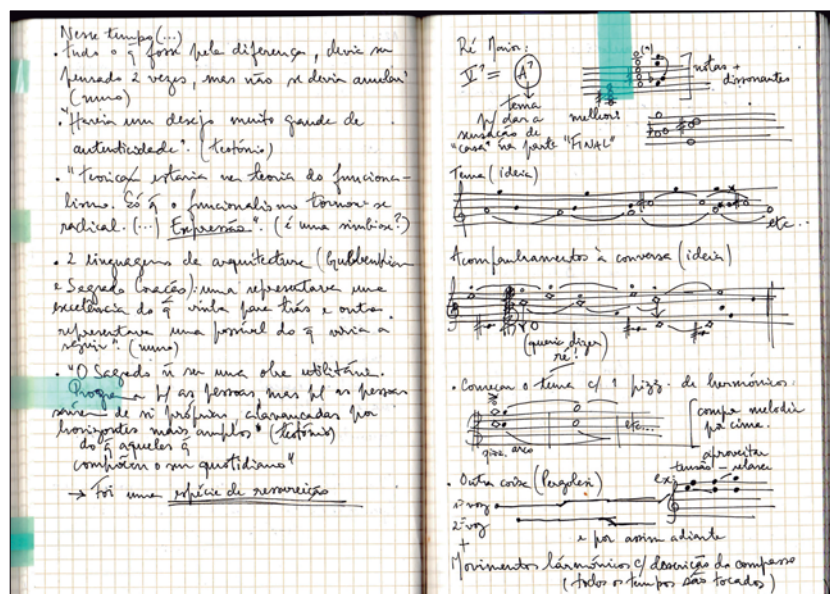 Nesse tempo (...)
• tudo o q̃ fosse pela diferença, devia ser
pensado 2 vezes, mas não se devia anular"
(nuno)
• "Haveria um desejo muito grande de
autenticidade". (teotónio)
• " estaria na teoria do funciona-
lismo. Só q̃ o funcionalismo tornou-se
radical. (...) Expressão". (é uma simbiose?)
• 2 linguagens de arquitectura (Gulbenkian
e Sagrado Coração): uma representava uma
excelência do q̃ vinha para trás e outra
representava uma possível do q̃ viria a
seguir". (nuno)
• "O Sagrado ñ ser uma obra utilitária.
p/ as pessoas mas p/ as pessoas
saírem de si próprias, alavancadas por
horizontes mais amplos" (teotónio)
do q̃ aqueles q̃
compõem o seu quotidiano"
→ Foi uma espécie de ressurreição
Ré Maior:
V⁷ = A⁷
notas +
dissonantes
tema
p/ dar a
sensação de
"casa" na parte "FINAL"
melhor!
Tema (ideia)
etc...
Acompanhamentos à conversa (ideia)
(queria dizer
ré!)
• Começar o tema c/ 1 pizz. de harmónicos:
pizz. arco
etc...
compor melodia
por cima.
• Outra coisa (Pergolesi)
aproveitar
tensão – relaxe
ex:
1ª voz
2ª voz
+
e por assim adiante
Movimentos harmónicos c/ descrição do compasso
(todos os tempos são tocados)